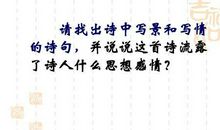 请找出诗中写景和写情
的诗句，并说说这首诗流露
了诗人什么思想感情？